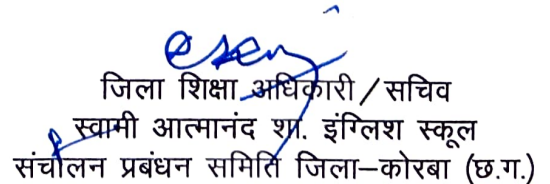 जिला शिक्षा अधिकारी / सचिव
स्वामी आत्मानंद शा. इंग्लिश स्कूल
संचालन प्रबंधन समिति जिला–कोरबा (छ.ग.)